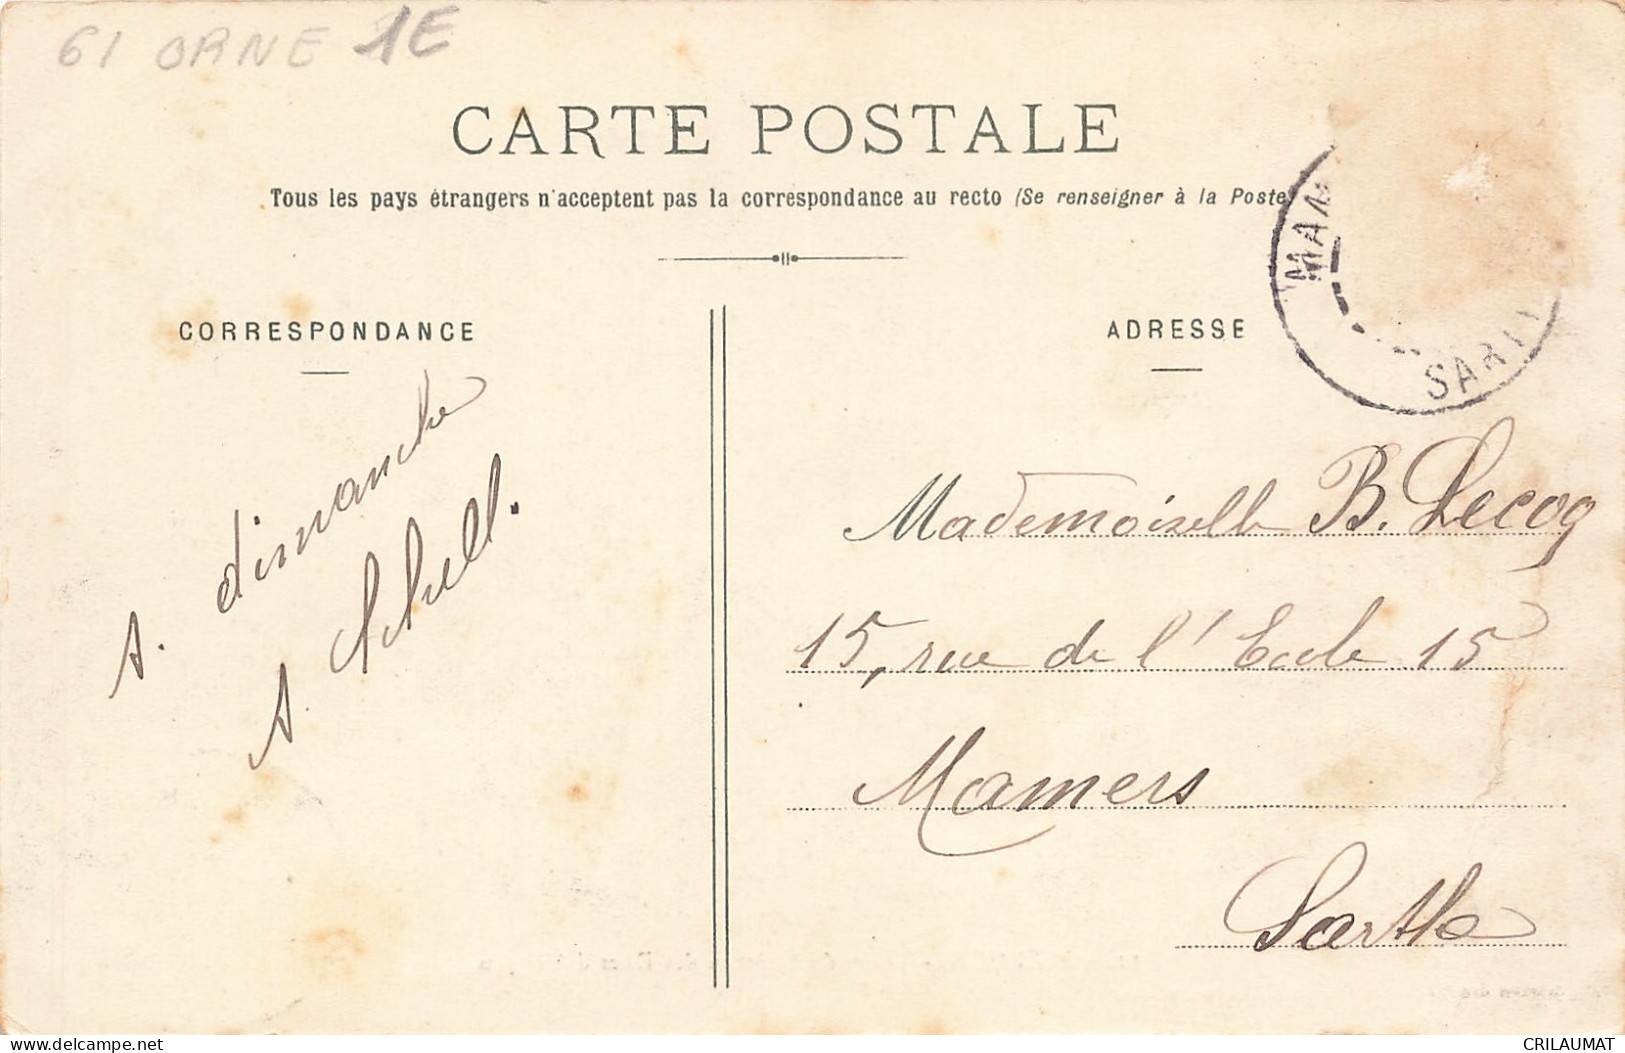 61 ORNE 1E
CARTE POSTALE
Tous les pays étrangers n'acceptent pas la correspondance au recto (Se renseigner à la Poste)
CORRESPONDANCE
ADRESSE
MAM
SART
s. dimanche
s.
Mademoiselle B. Lecoq
15, rue de l'Ecole 15
Mamers
Sarthe
www.delcampe.net
CRILAUMAT